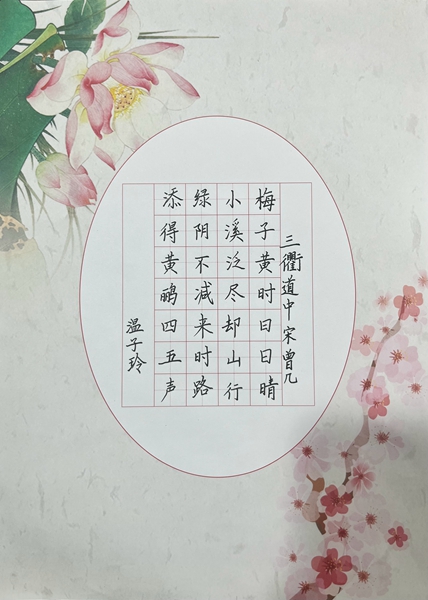 三衢道中宋曾几
梅子黄时日日晴
小溪泛尽却山行
绿阴不减来时路
添得黄鹂四五声
温子玲